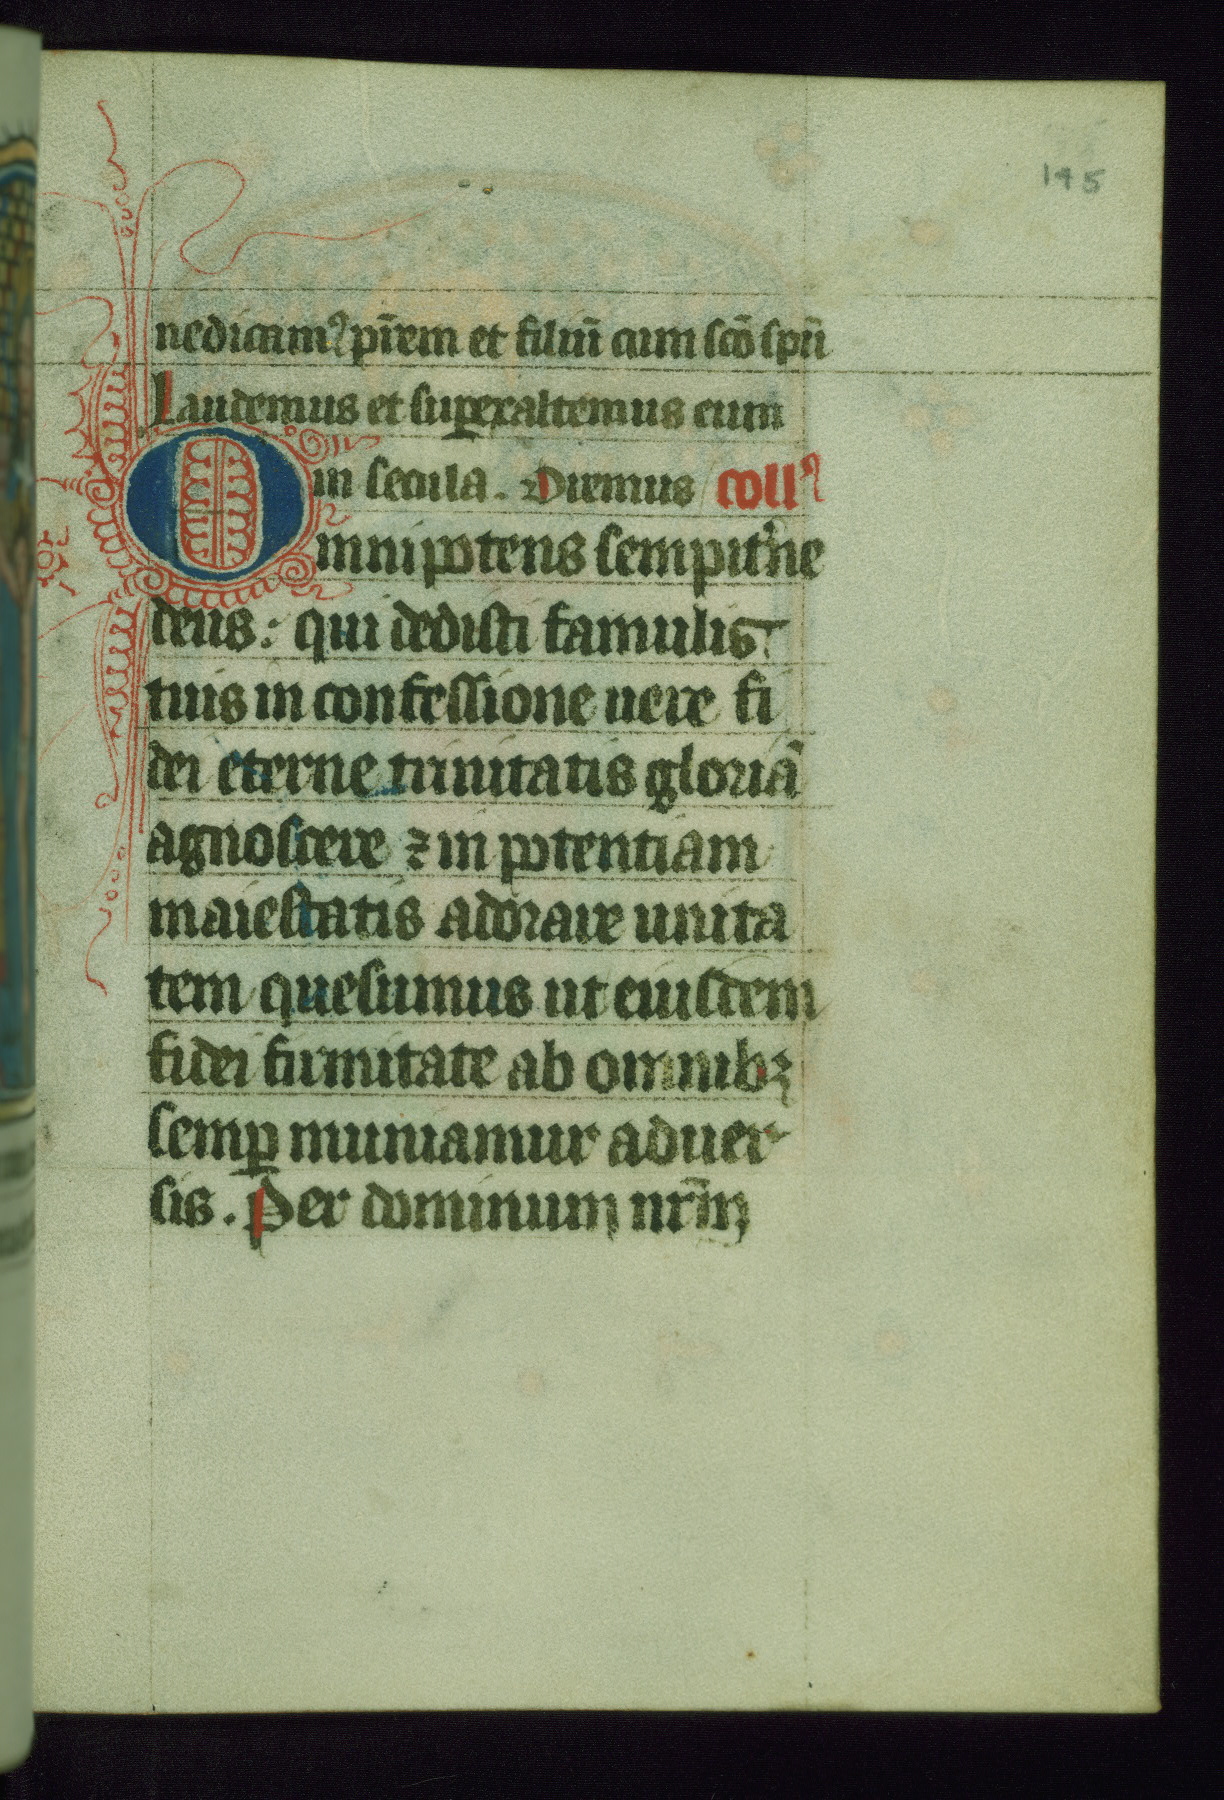 145
nedicamꝰ pr̄em et filiū cum sc̄o sp̄u
Laudemus et superaltemus eum
in secula. Oremus coll'
Omnipotens sempit'ne
deus: qui dedisti famulis
tuis in confessione uere fi
dei eterne trinitatis gloriā
agnoscere ⁊ in potentiam
maiestatis adorare unita
tem quesumus ut eiusdem
fidei firmitate ab omnibꝫ
semꝑ muniamur aduer
sis. Per dominum nr̄m